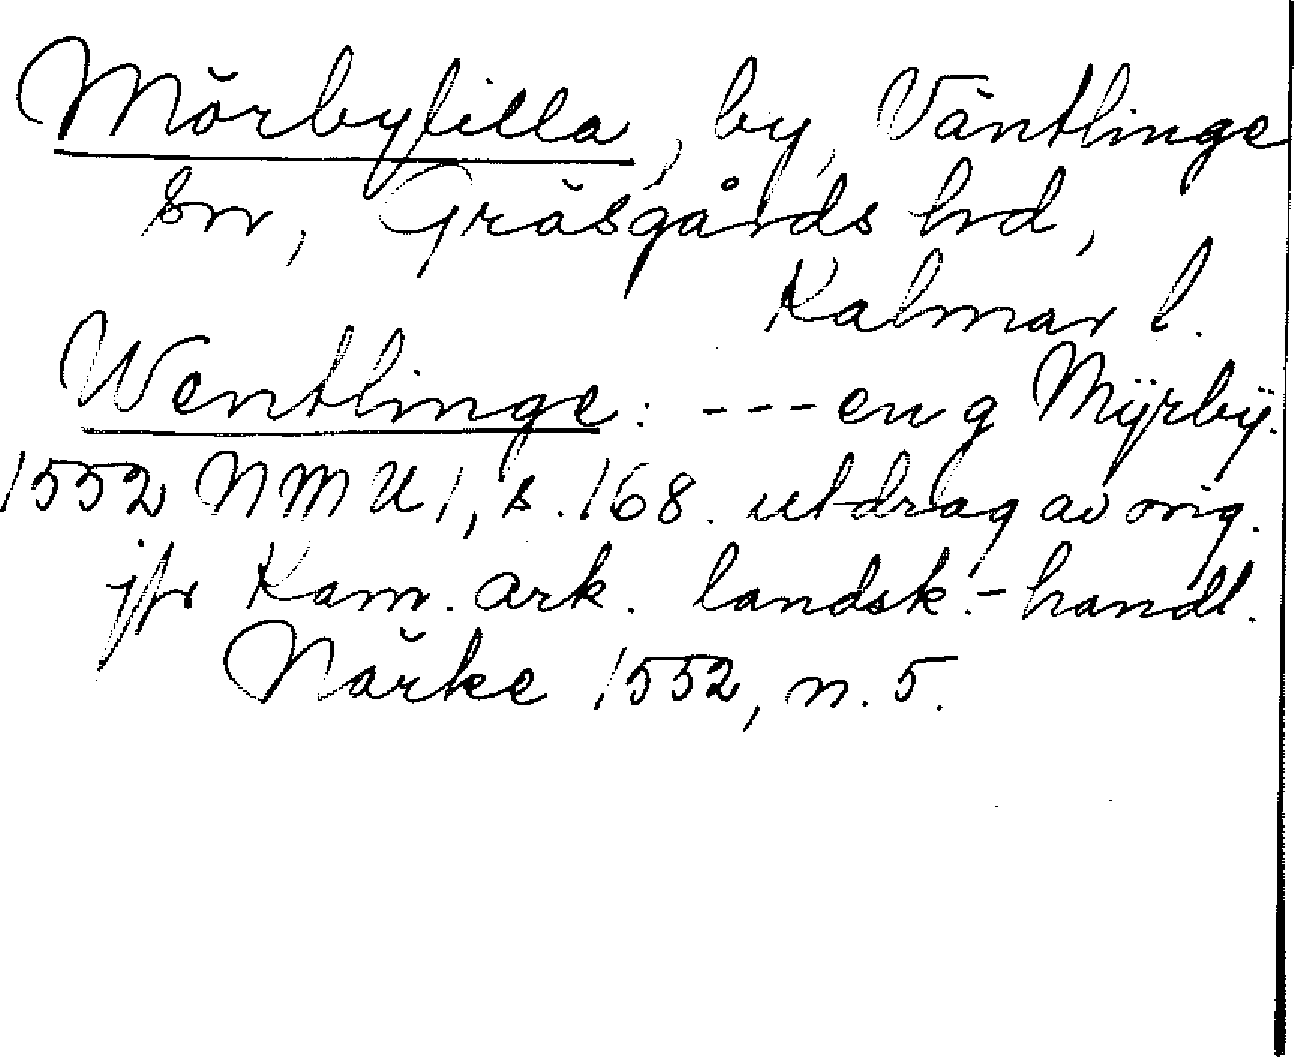 Mörbylilla, by, Väntlinge
sn, Gräsgårds hd,
Kalmar l.
Wentlinge: --- en g Mÿrbÿ.
1552 NMU 1, s. 168. utdrag av orig.
jfr Kam. ark. landsk.-handl.
Närke 1552, n. 5.